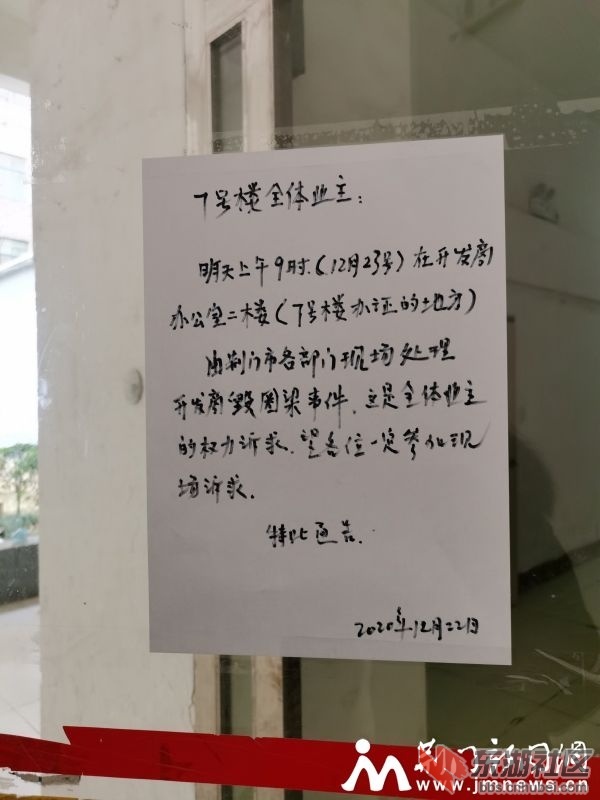 7号楼全体业主：
明天上午9时.(12月23号)在开发商
办公室二楼(7号楼办证的地方)
由荆门市各部门现场处理
开发商毁圈梁事件.这是全体业主
的权力诉求.望各位一定参加现
场诉求.
特此通告.
2020年12月二2日
荆门新闻网
www.jmnews.cn
东湖社区